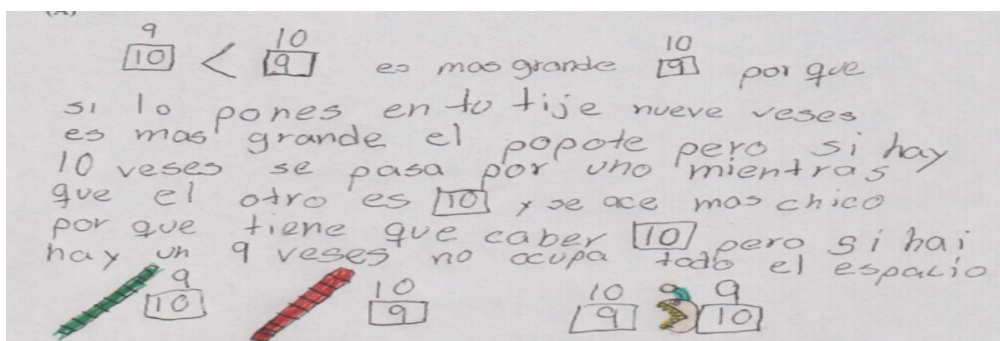 9/10 < 10/9 es mas grande 10/9 por que
si lo pones en tu tije nueve veses
es mas grande el popote pero si hay
10 veses se pasa por uno mientras
que el otro es 10 y se ace mas chico
por que tiene que caber 10 pero si hai
hay un 9 veses no ocupa todo el espacio
9/10 10/9 10/9 9/10